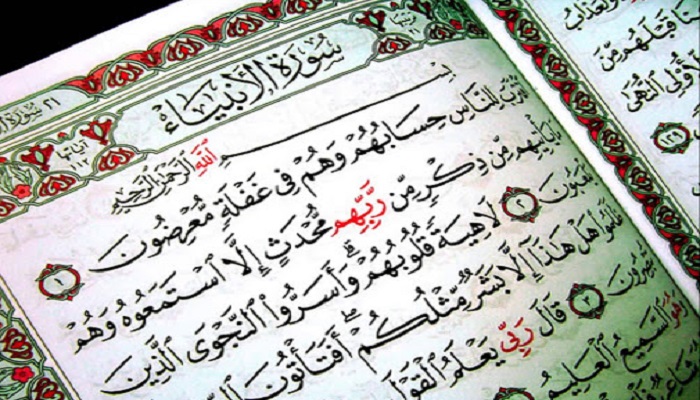 سُورَةُ الأَنبِيَاءِ
بِسْمِ ٱللَّهِ ٱلرَّحْمَٰنِ ٱلرَّحِيمِ
ٱقْتَرَبَ لِلنَّاسِ حِسَابُهُمْ وَهُمْ فِى غَفْلَةٍ مُّعْرِضُونَ ١
يَأْتِيهِم مِّن ذِكْرٍ مِّن رَّبِّهِم مُّحْدَثٍ إِلَّا ٱسْتَمَعُوهُ وَهُمْ
يَلْعَبُونَ ٢ لَاهِيَةً قُلُوبُهُمْ وَأَسَرُّوا۟ ٱلنَّجْوَى ٱلَّذِينَ
ظَلَمُوا۟ هَلْ هَٰذَآ إِلَّا بَشَرٌ مِّثْلُكُمْ أَفَتَأْتُونَ
تُبْصِرُونَ ٣ قَالَ رَبِّى يَعْلَمُ ٱلْقَوْلَ
وَهُوَ ٱلسَّمِيعُ ٱلْعَلِيمُ
قَبْلَهُم مِّن
ٱلنُّهَىٰ